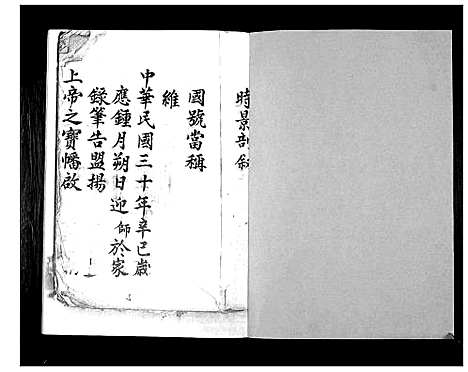 時景剖叙
國號當稱
維
中華民國三十年辛巳歲
應鍾月朔日迎師於家
錄筆告盟揚
上帝之寶幡啟